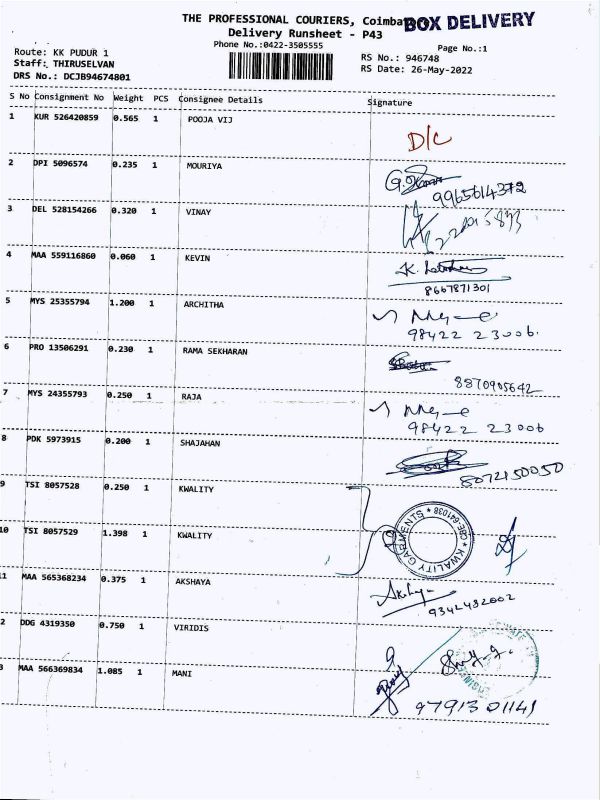 THE PROFESSIONAL COURIERS, Coimbat
BOX DELIVERY
Delivery Runsheet - P43
Phone No.:0422-3505555
Page No.:1
Route: KK PUDUR 1
RS No.: 946748
Staff: THIRUSELVAN
RS Date: 26-May-2022
DRS No.: DCJB94674801
S No Consignment No Weight PCS Consignee Details Signature
1 KUR 526420859 0.565 1 POOJA VIJ
D/C
2 DPI 5096574 0.235 1 MOURIYA
9965614372
3 DEL 528154266 0.320 1 VINAY
4 MAA 559116860 0.060 1 KEVIN
8667871301
5 MYS 25355794 1.200 1 ARCHITHA
98422 23006
6 PRO 13506291 0.230 1 RAMA SEKHARAN
8870905642
7 MYS 24355793 0.250 1 RAJA
98422 23006
8 PDK 5973915 0.200 1 SHAJAHAN
8072150050
9 TSI 8057528 0.250 1 KWALITY
10 TSI 8057529 1.398 1 KWALITY
* KWALITY GARMENTS * CBE-641038
11 MAA 565368234 0.375 1 AKSHAYA
Akshaya
9342432002
2 DDG 4319350 0.750 1 VIRIDIS
3 MAA 566369834 1.085 1 MANI
97913 01141